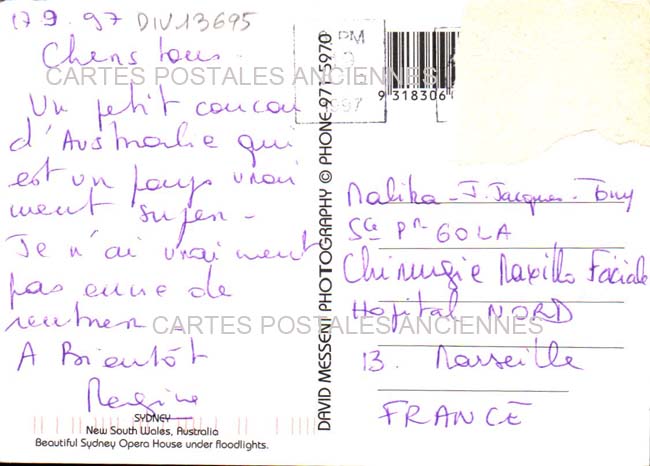 17 9. 97 DIV13695
Chers tous.
Un petit coucou
d'Australie qui
est un pays vrai
ment super -
Je n'ai vraiment
pas envie de
rentrer -
A Bientôt
Régine
SYDNEY
New South Wales, Australia
Beautiful Sydney Opera House under floodlights.
DAVID MESSENT PHOTOGRAPHY © PHONE 971 5970
PM
1997
9 318306
Malika - J. Jacques - Tony
Sce Pr GOLA
Chirurgie Maxillo Faciale
Hopital NORD
13. Marseille
FRANCE
CARTES POSTALES ANCIENNES
CARTES POSTALES ANCIENNES